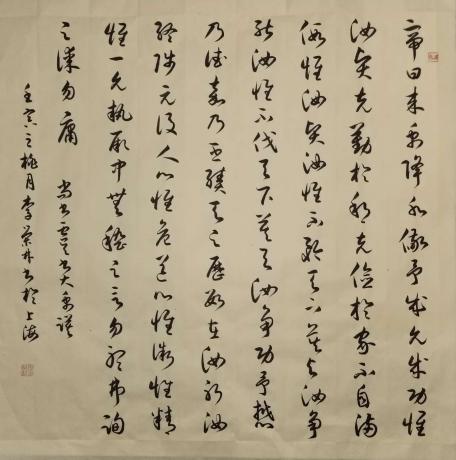 帝曰来禹降水儆予成允成功惟
汝賢克勤於邦克儉於家不自滿
假惟汝賢汝惟不矜天下莫与汝爭
能汝惟不伐天下莫与汝爭功予懋
乃德嘉乃丕績天之歷數在汝躬汝
終陟元后人心惟危道心惟微惟精
惟一允執厥中無稽之言勿聽弗詢
之謀勿庸 尚書虞書大禹謨
壬寅之桃月李榮書於上海